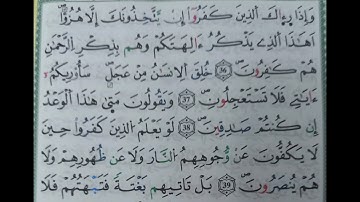 وَإِذَا رَءَاكَ اَ۬لذِينَ كَفَرُوٓاْ إِنْ يَّتَّخِذُونَكَ إِلَّا هُزُؤاً
اَهَٰذَا اَ۬لذِے يَذْكُرُ ءَالِهَتَكُمْ وَهُم بِذِكْرِ اِ۬لرَّحْمَٰنِ
هُمْ كَٰفِرُونَۖ 36 خُلِقَ اَ۬لِانسَٰنُ مِنْ عَجَلٍۖ سَأُوْرِيكُمُۥٓ
ءَايَٰتِے فَلَا تَسْتَعْجِلُونِۖ 37 وَيَقُولُونَ مَتَىٰ هَٰذَا اَ۬لْوَعْدُ
إِن كُنتُمْ صَٰدِقِينَۖ 38 لَوْ يَعْلَمُ اُ۬لذِينَ كَفَرُواْ حِينَ
لَا يَكُفُّونَ عَنْ وُّجُوهِهِمُ اُ۬لنَّارَ وَلَا عَن ظُهُورِهِمْ وَلَا
هُمْ يُنصَرُونَۖ 39 بَلْ تَاتِيهِم بَغْتَةً فَتَبْهَتُهُمْ فَلَا